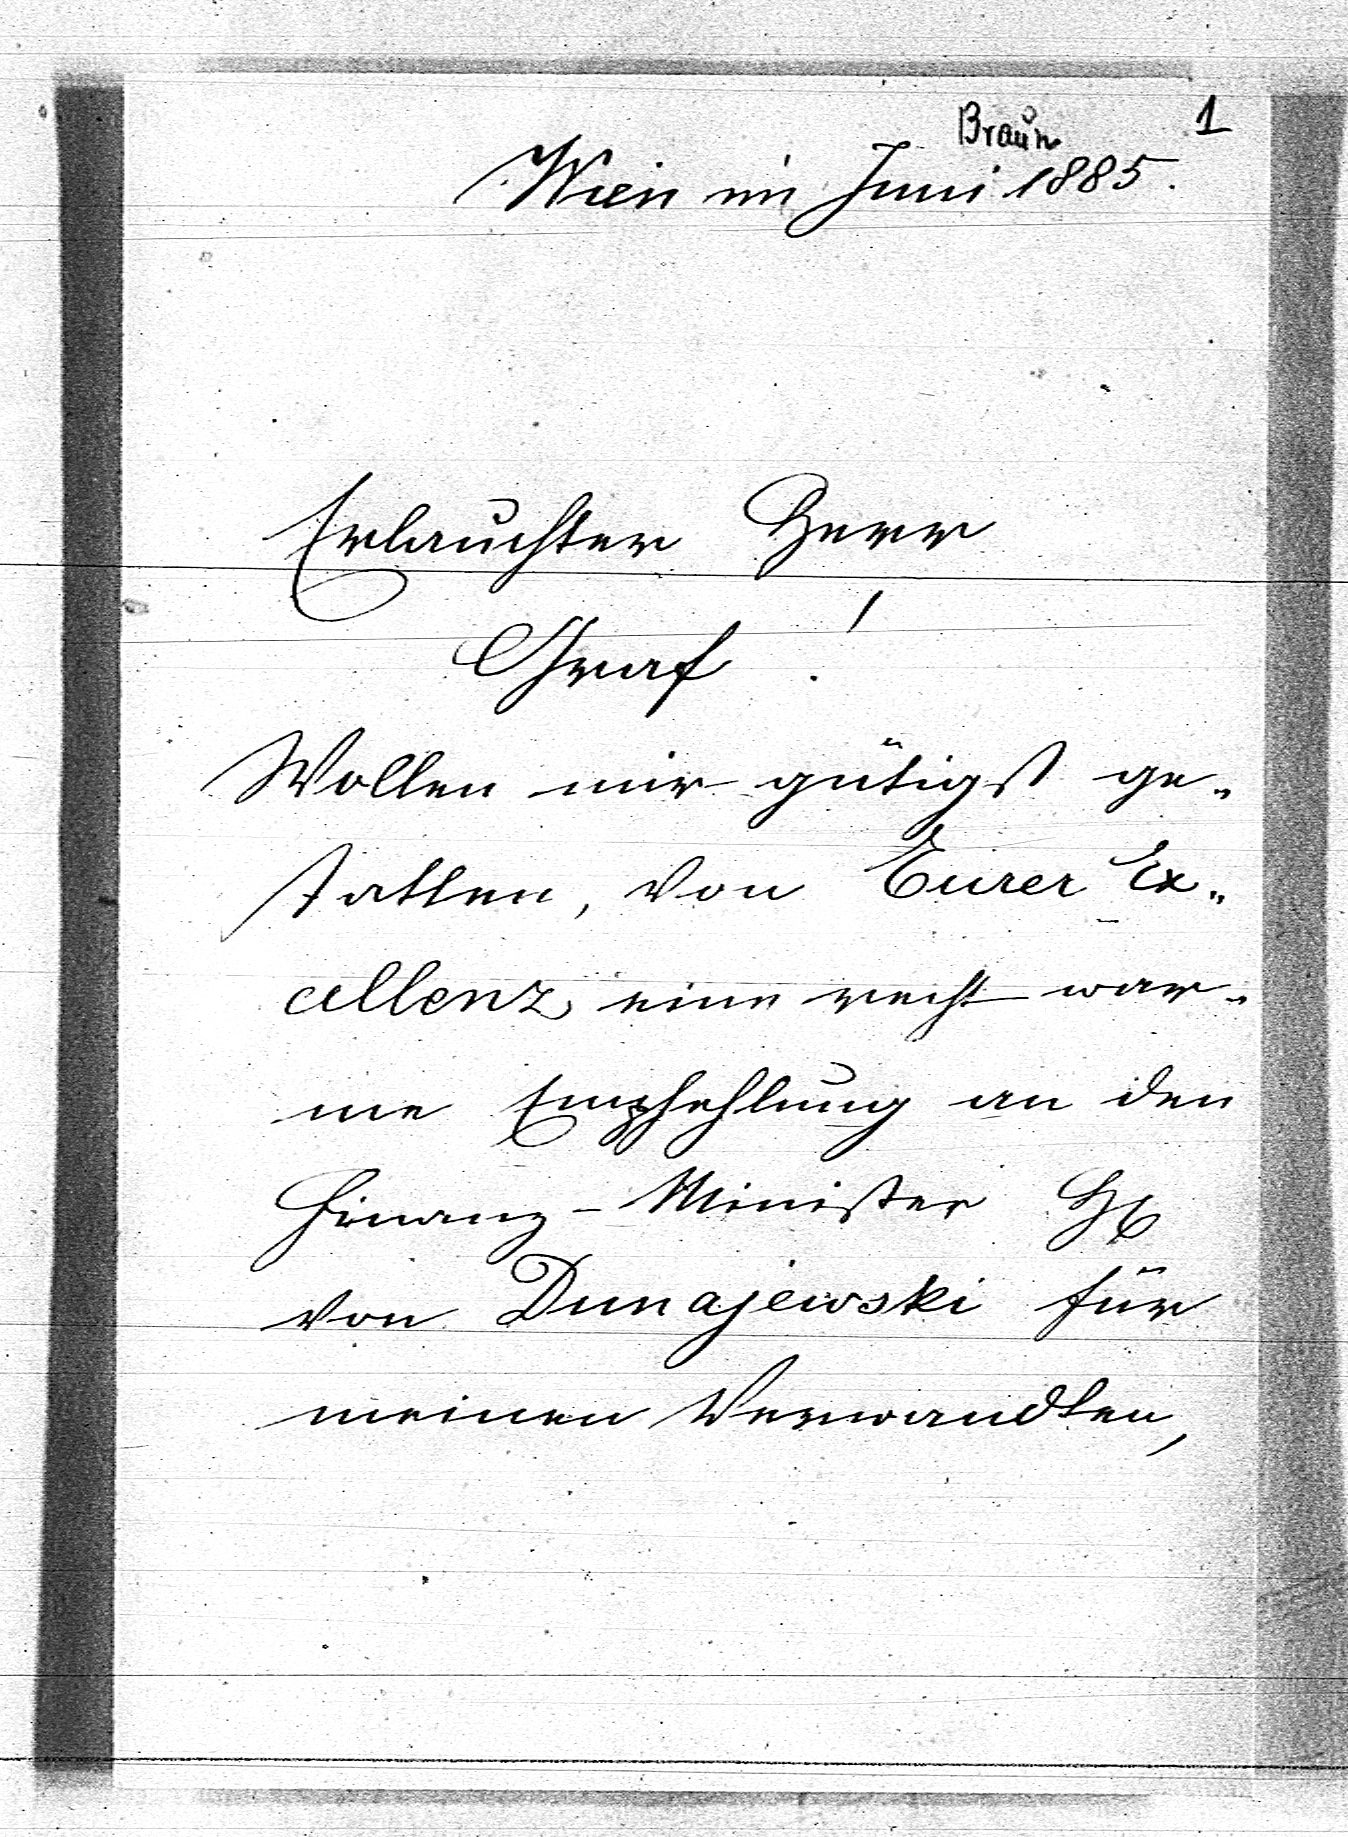 Braun 1
Wien im Juni 1885.
Erlauchter Herr
Graf !
Wollen mir gütigst ge„
statten, von Eurer Ex„
cellenz eine recht war„
me Empfehlung an den
Finanz-Minister H
von Dunajewski für
meinen Verwandten,